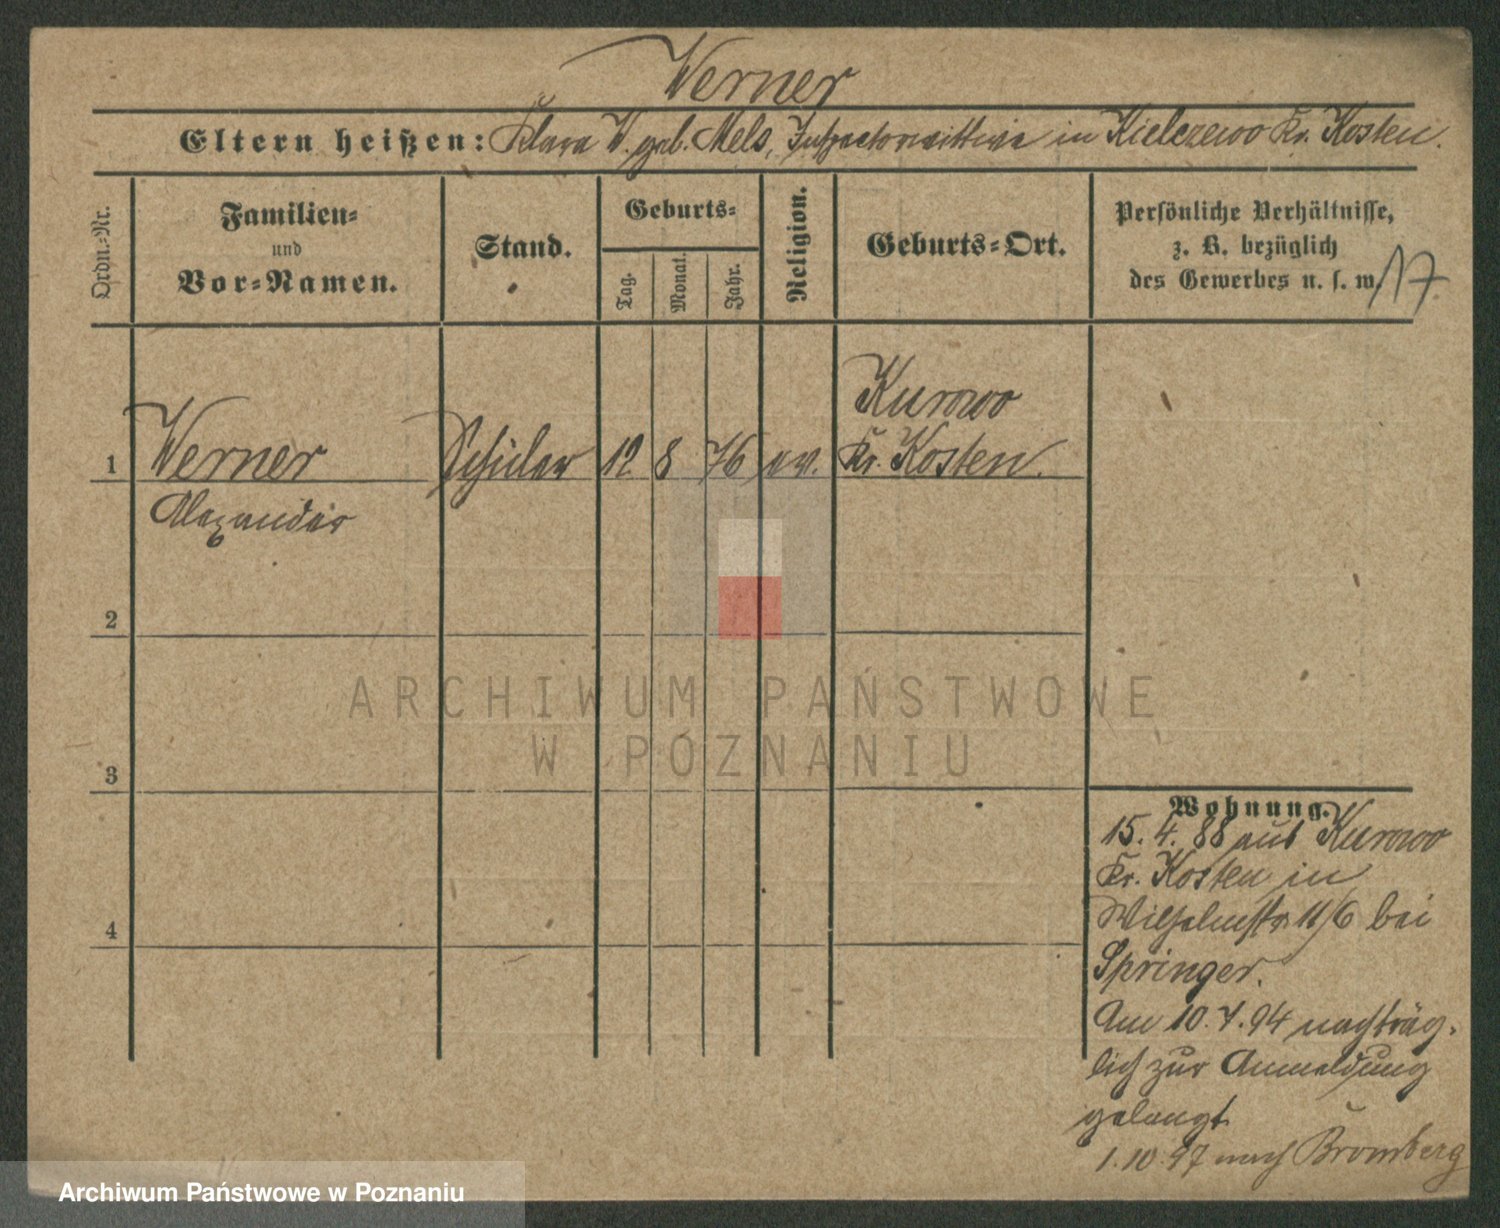 Werner
Eltern heißen: Klara W. geb. Mels, Inspectorwittwe in Kielczewo Kr. Kosten.
Ordn.-Nr.
Familien-
und
Vor-Namen.
Stand.
Geburts-
Tag.
Monat.
Jahr.
Religion.
Geburts-Ort.
Persönliche Verhältnisse,
z. B. bezüglich
des Gewerbes u. s. w.
17
Kurowo
1 Werner Schüler 12 8 76 ev. Kr. Kosten.
Alexander
2
ARCHIWUM PAŃSTWOWE
W POZNANIU
3
Wohnung.
15. 4. 88 aus Kurowo
Kr. Kosten in
Wilhelmstr. 11/6 bei
Springer.
4
Am 10. 7. 94 nachträg-
lich zur Anmeldung
gelangt.
1. 10. 97 nach Bromberg
Archiwum Państwowe w Poznaniu